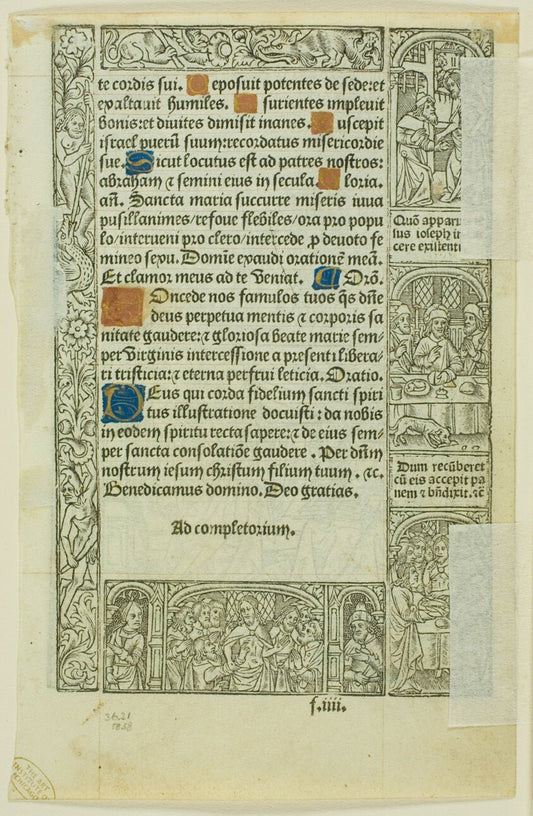 te cordis sui. Deposuit potentes de sede: et
exaltauit humiles. Esurientes impleuit
bonis: et diuites dimisit inanes. Suscepit
israel puerū suum: recordatus misericordie
sue. Sicut locutus est ad patres nostros:
abraham ⁊ semini eius in secula. Gloria.
añ. Sancta maria succurre miseris iuua
pusillanimes/refoue flebiles/ora pro popu
lo/interueni pro clero/intercede ꝓ deuoto fe
mineo sexu. Domīe exaudi orationē meā.
Et clamor meus ad te veniat. Orō.
Concede nos famulos tuos q̄s dn̄e
deus perpetua mentis ⁊ corporis sa
nitate gaudere: ⁊ gloriosa beate marie sem-
per virginis intercessione a presenti libera-
ri tristicia: ⁊ eterna perfrui leticia. Oratio.
Deus qui corda fidelium sancti spiri
tus illustratione docuisti: da nobis
in eodem spiritu recta sapere: ⁊ de eius sem-
per sancta consolatiōe gaudere. Per dn̄m
nostrum iesum christum filium tuum. ⁊c.
Benedicamus domino. Deo gratias.
Ad completorium.
Quō appari
ius ioseph i
cere existenti
Dum recūberet
cū eis accepit pa
nem ⁊ bn̄dixit. ⁊c
f.iiii.
36.21
1858
THE ART
INSTITUTE OF
CHICAGO